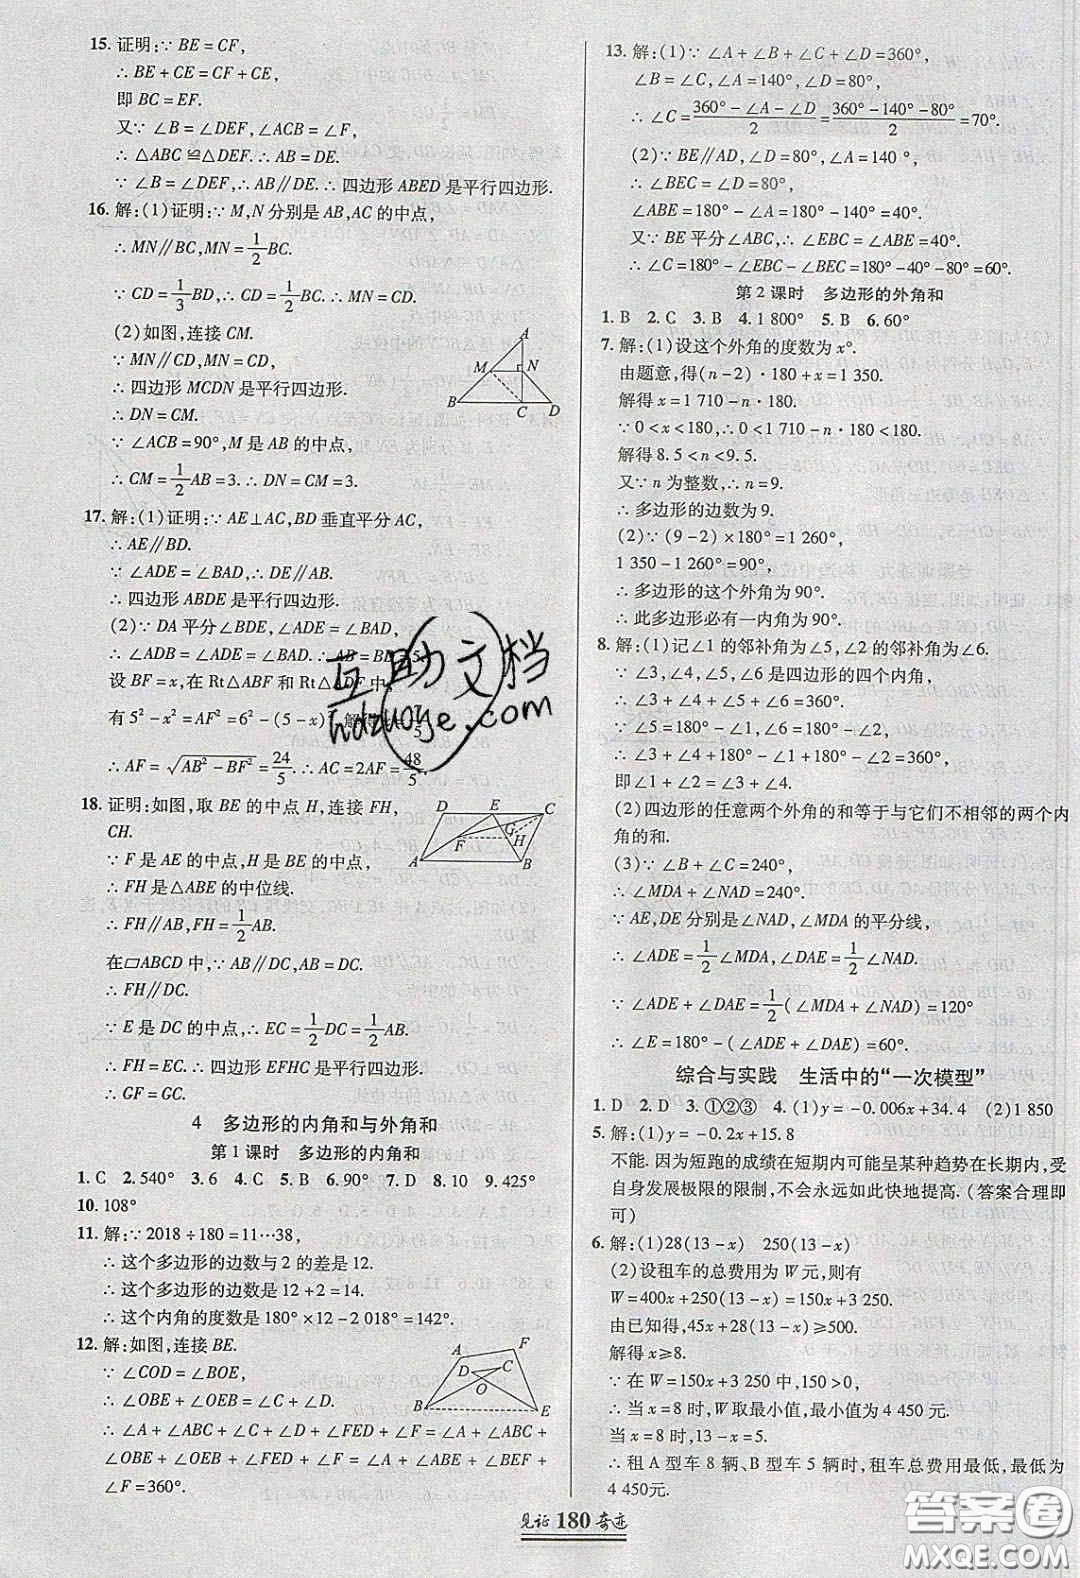 15. 证明:∵ BE = CF,
∴ BE + CE = CF + CE,
即 BC = EF.
又∵ ∠B = ∠DEF, ∠ACB = ∠F,
∴ △ABC ≌ △DEF. ∴ AB = DE.
∵ ∠B = ∠DEF, ∴ AB∥DE. ∴ 四边形 ABED 是平行四边形.
16. 解:(1)证明:∵ M,N 分别是 AB,AC 的中点,
∴ MN∥BC, MN = 1/2 BC.
∵ CD = 1/3 BD, ∴ CD = 1/2 BC. ∴ MN = CD.
(2)如图,连接 CM.
∵ MN∥CD, MN = CD,
∴ 四边形 MCDN 是平行四边形.
∴ DN = CM.
∵ ∠ACB = 90°, M 是 AB 的中点,
∴ CM = 1/2 AB = 3. ∴ DN = CM = 3.
A
M N
B C D
17. 解:(1)证明:∵ AE⊥AC, BD 垂直平分 AC,
∴ AE∥BD.
∵ ∠ADE = ∠BAD, ∴ DE∥AB.
∴ 四边形 ABDE 是平行四边形.
(2)∵ DA 平分 ∠BDE, ∠ADE = ∠BAD,
∴ ∠ADB = ∠ADE = ∠BAD. ∴ AB = BD = 5.
设 BF = x, 在 Rt△ABF 和 Rt△ADF 中,
有 5² - x² = AF² = 6² - (5 - x)²
∴ AF = √(AB² - BF²) = 24/5. ∴ AC = 2AF = 48/5.
18. 证明:如图,取 BE 的中点 H,连接 FH,
CH.
∵ F 是 AE 的中点,H 是 BE 的中点,
∴ FH 是△ABE 的中位线.
∴ FH∥AB, FH = 1/2 AB.
在▱ABCD 中, AB∥DC, AB = DC.
∴ FH∥DC.
∵ E 是 DC 的中点, ∴ EC = 1/2 DC = 1/2 AB.
∴ FH = EC. ∴ 四边形 EFHC 是平行四边形.
∴ GF = GC.
D E C
F G H
A B
4 多边形的内角和与外角和
第 1 课时 多边形的内角和
1. C 2. 540° 3. 6 4. C 5. B 6. 90° 7. D 8. 10 9. 425°
10. 108°
11. 解:∵ 2018 ÷ 180 = 11…38,
∴ 这个多边形的边数与 2 的差是 12.
∴ 这个多边形的边数是 12 + 2 = 14.
∴ 这个内角的度数是 180° × 12 - 2 018° = 142°.
12. 解:如图,连接 BE.
∵ ∠COD = ∠BOE,
∴ ∠OBE + ∠OEB = ∠C + ∠D.
∴ ∠A + ∠ABC + ∠C + ∠D + ∠FED + ∠F = ∠A + ∠ABC +
∠OBE + ∠OEB + ∠FED + ∠F = ∠A + ∠ABE + ∠BEF +
∠F = 360°.
A F
D C
O
B E
13. 解:(1)∵ ∠A + ∠B + ∠C + ∠D = 360°,
∠B = ∠C, ∠A = 140°, ∠D = 80°,
∴ ∠C = (360° - ∠A - ∠D)/2 = (360° - 140° - 80°)/2 = 70°.
(2)∵ BE∥AD, ∠A = 140 °,
∴ ∠BEC = ∠D = 80°,
∠ABE = 180° - ∠A = 180° - 140° = 40°.
又∵ BE 平分∠ABC, ∴ ∠EBC = ∠ABE = 40°.
∴ ∠C = 180° - ∠EBC - ∠BEC = 180° - 40° - 80° = 60°.
第 2 课时 多边形的外角和
1. B 2. C 3. B 4. 1 800° 5. B 6. 60°
7. 解:(1)设这个外角的度数为 x°.
由题意,得(n - 2) · 180 + x = 1 350.
解得 x = 1 710 - n · 180.
∵ 0 < x < 180, ∴ 0 < 1 710 - n · 180 < 180.
解得 8. 5 < n < 9. 5.
又∵ n 为整数, ∴ n = 9.
∴ 多边形的边数为 9.
(2)∵ (9 - 2) × 180° = 1 260°,
1 350° - 1 260° = 90°,
∴ 多边形的这个外角为 90°.
∴ 此多边形必有一内角为 90°.
8. 解:(1)记∠1 的邻补角为∠5,∠2 的邻补角为∠6.
∵ ∠3,∠4,∠5,∠6 是四边形的四个内角,
∴ ∠3 + ∠4 + ∠5 + ∠6 = 360°.
∵ ∠5 = 180° - ∠1, ∠6 = 180° - ∠2,
∴ ∠3 + ∠4 + 180° - ∠1 + 180° - ∠2 = 360°,
即∠1 + ∠2 = ∠3 + ∠4.
(2)四边形的任意两个外角的和等于与它们不相邻的两个内
角的和.
(3)∵ ∠B + ∠C = 240°,
∴ ∠MDA + ∠NAD = 240°.
∵ AE,DE 分别是∠NAD,∠MDA 的平分线,
∴ ∠ADE = 1/2 ∠MDA, ∠DAE = 1/2 ∠NAD.
∴ ∠ADE + ∠DAE = 1/2 (∠MDA + ∠NAD) = 120°
∴ ∠E = 180° - (∠ADE + ∠DAE) = 60°.
综合与实践 生活中的“一次模型”
1. D 2. D 3. ①②③ 4. (1)y = -0. 006x + 34. 4 (2)1 850
5. 解:(1)y = -0. 2x + 15. 8
不能. 因为短跑的成绩在短期内可能呈某种趋势在长期内,受
自身发展极限的限制,不会永远如此快地提高. (答案合理即
可)
6. 解:(1)28(13 - x) 250(13 - x)
(2)设租车的总费用为 W 元,则有
W = 400x + 250(13 - x) = 150x + 3 250.
由已知得,45x + 28(13 - x) ≥ 500.
解得 x ≥ 8.
∵ 在 W = 150x + 3 250 中,150 > 0,
∴ 当 x = 8 时,W 取最小值,最小值为 4 450 元.
当 x = 8 时,13 - x = 5.
∴ 租 A 型车 8 辆、B 型车 5 辆时,租车总费用最低,最低为
4 450 元.
见证 180 奇迹
互助文档
hdzuoye.com
答案圈
MXQE.COM